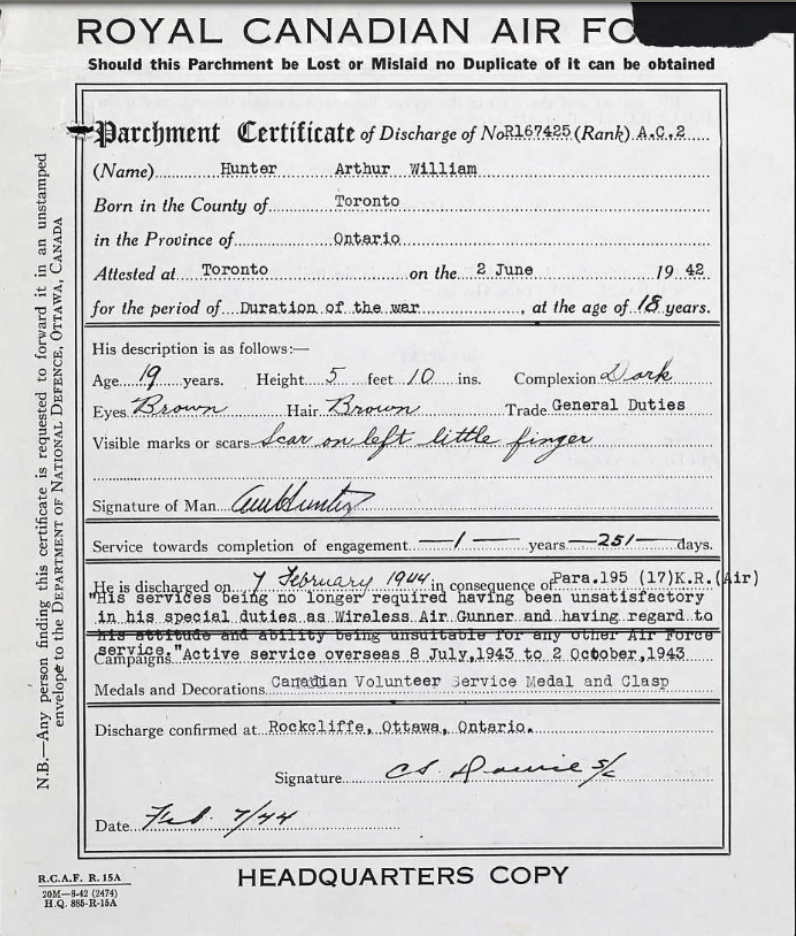 ROYAL CANADIAN AIR FO
Should this Parchment be Lost or Mislaid no Duplicate of it can be obtained
Parchment Certificate of Discharge of No. R167425 (Rank) A.C.2
(Name) Hunter Arthur William
Born in the County of Toronto
in the Province of Ontario
Attested at Toronto on the 2 June 19 42
for the period of Duration of the war, at the age of 18 years.
His description is as follows:—
Age 19 years. Height 5 feet 10 ins. Complexion Dark
Eyes Brown Hair Brown Trade General Duties
Visible marks or scars Scar on left little finger
Signature of Man AWHunter
Service towards completion of engagement —1— years —251— days.
He is discharged on 7 February 1944 in consequence of Para.195 (17)K.R.(Air)
"His services being no longer required having been unsatisfactory
in his special duties as Wireless Air Gunner and having regard to
his attitude and ability being unsuitable for any other Air Force
service."
Campaigns "Active service overseas 8 July,1943 to 2 October,1943
Medals and Decorations Canadian Volunteer Service Medal and Clasp
Discharge confirmed at Rockcliffe, Ottawa, Ontario.
Signature
Date Feb. 7/44
N.B.—Any person finding this certificate is requested to forward it in an unstamped
envelope to the DEPARTMENT OF NATIONAL DEFENCE, OTTAWA, CANADA
R.C.A.F. R. 15A
20M—8-42 (2474)
H.Q. 885-R-15A
HEADQUARTERS COPY